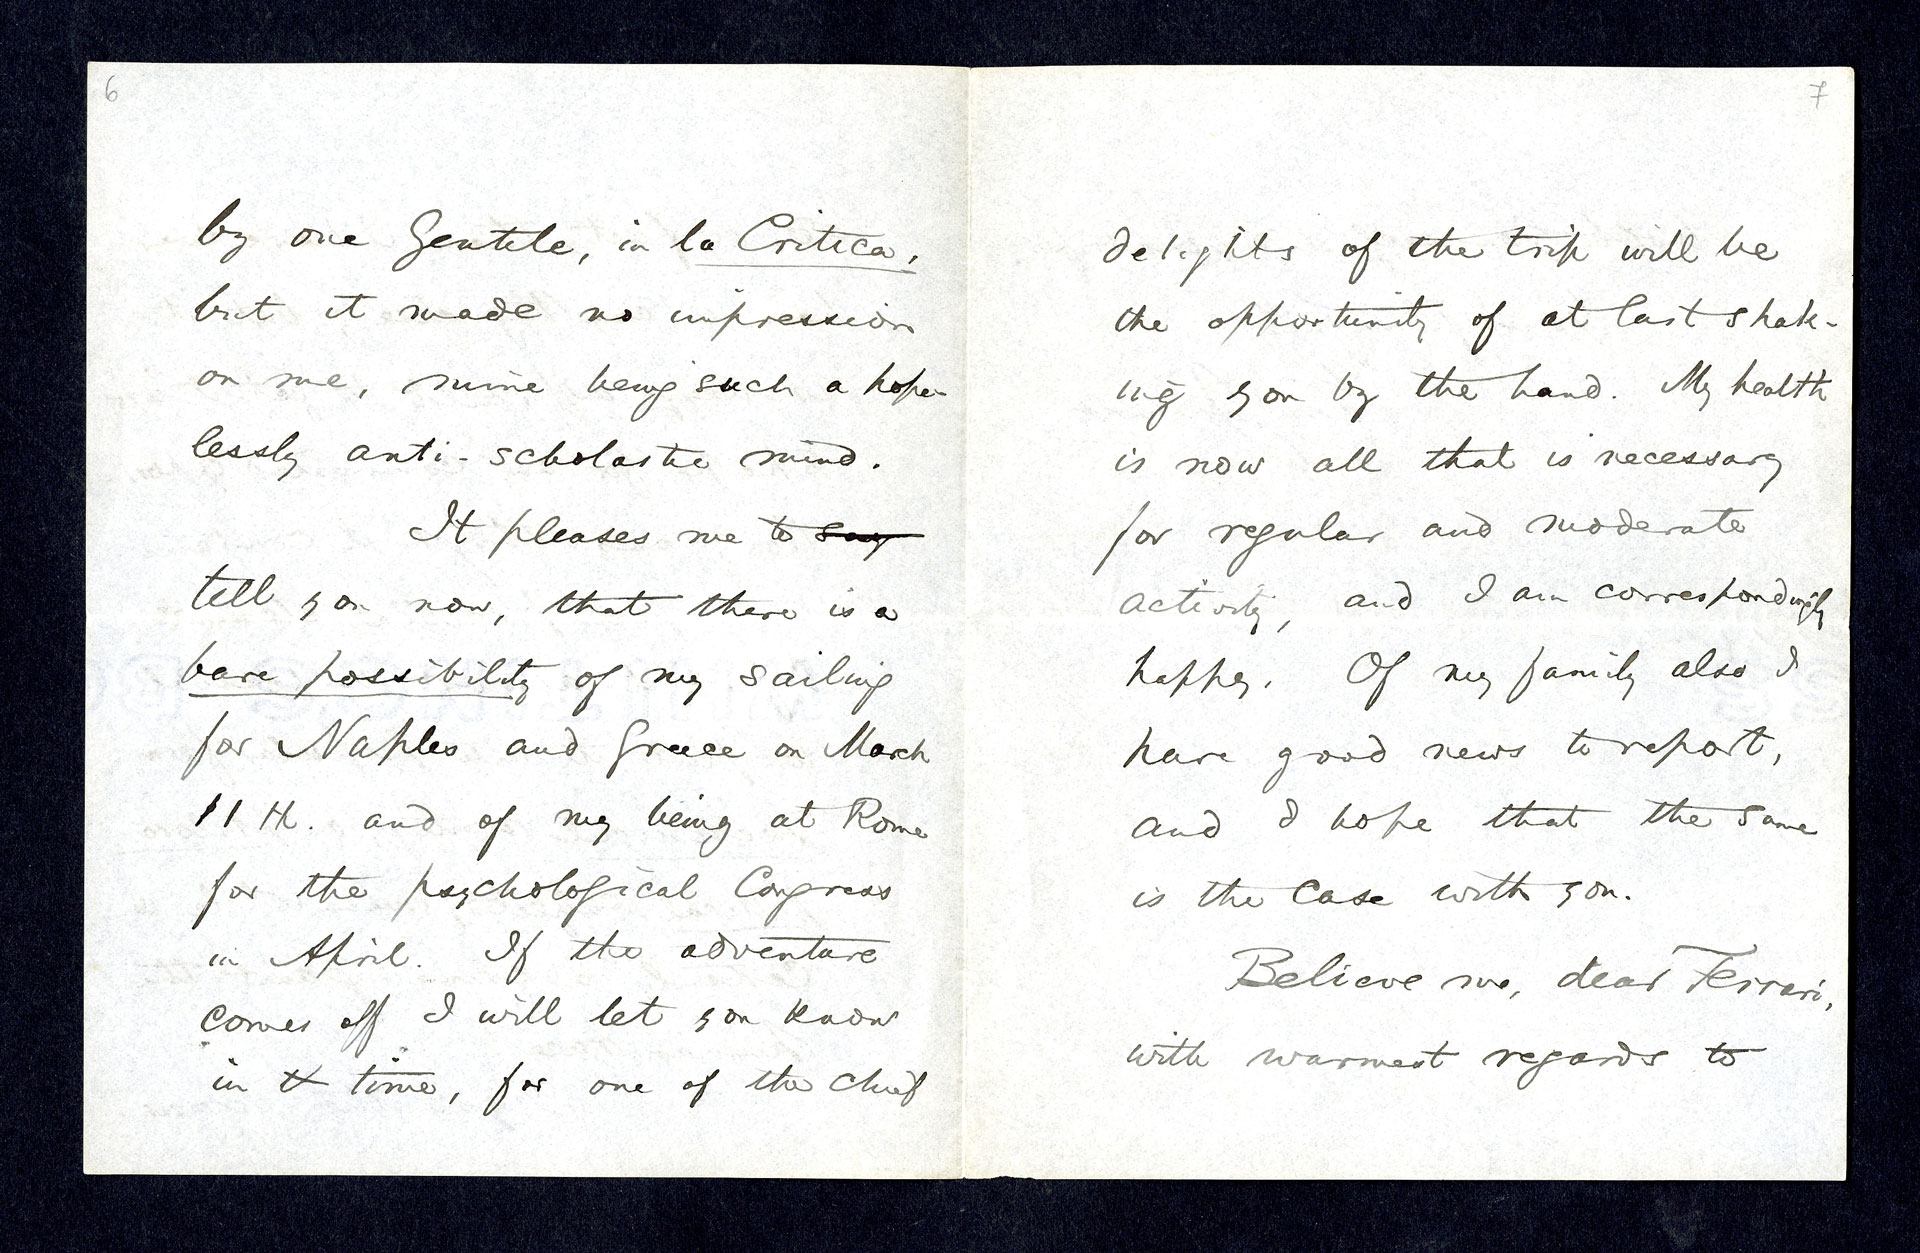 6
by one Gentile, in la Critica,
but it made no impression
on me, mine being such a hope-
lessly anti-scholastic mind.
It pleases me to say
tell you now, that there is a
bare possibility of my sailing
for Naples and Greece on March
11th. and of my being at Rome
for the psychological Congress
in April. If the adventure
comes off I will let you know
in time, for one of the chief
7
delights of the trip will be
the opportunity of at last shak-
ing you by the hand. My health
is now all that is necessary
for regular and moderate
activity, and I am correspondingly
happy. Of my family also I
have good news to report,
and I hope that the same
is the case with you.
Believe me, dear Ferrari,
with warmest regards to